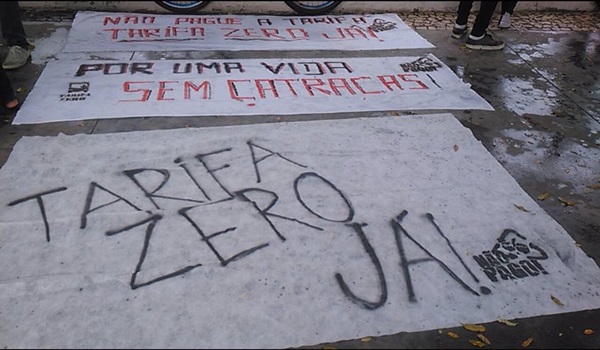 NÃO PAGUE A TARIFA
TARIFA ZERO JÁ!
POR UMA VIDA
SEM ÇATRACAS!
TARIFA
ZERO
TARIFA
ZERO
JÁ!
NÃO
PAGO!